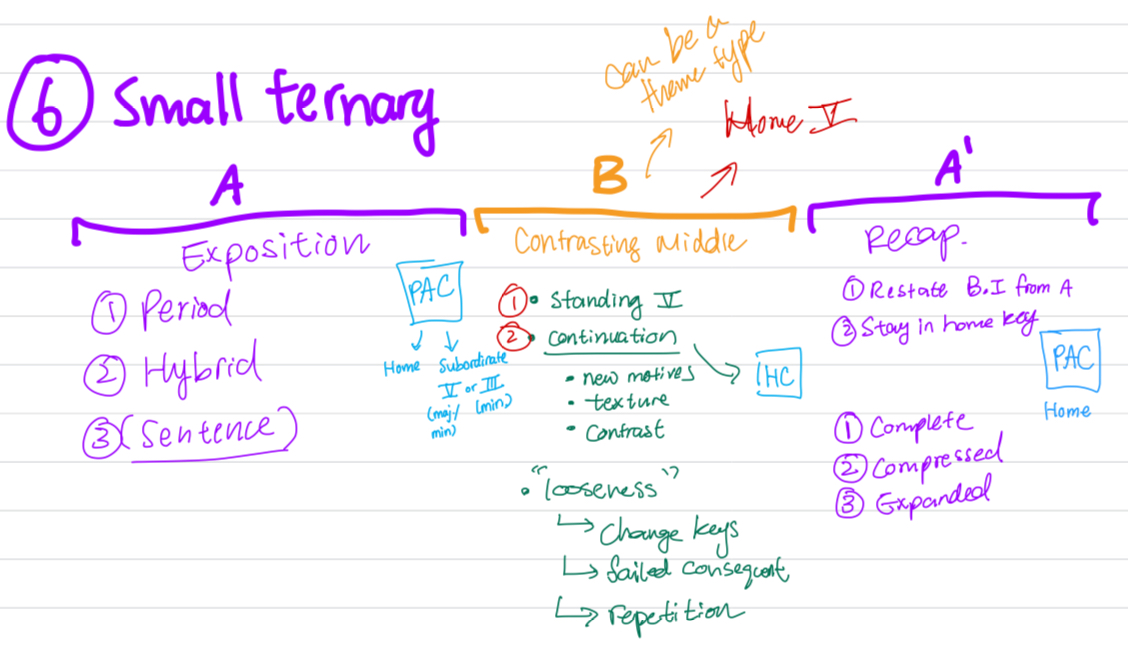 ⑥ Small ternary
can be a
theme type
Home V
A
B
A'
Exposition
Contrasting Middle
Recap.
① Period
② Hybrid
③ (Sentence)
PAC
Home
Subordinate
V or III
(maj/
min)
(min)
① • Standing V
② • continuation
• new motives
• texture
• Contrast
HC
• "looseness"
↳ Change keys
↳ failed consequent
↳ repetition
① Restate B.I from A
② Stay in home key
PAC
Home
① Complete
② Compressed
③ Expanded